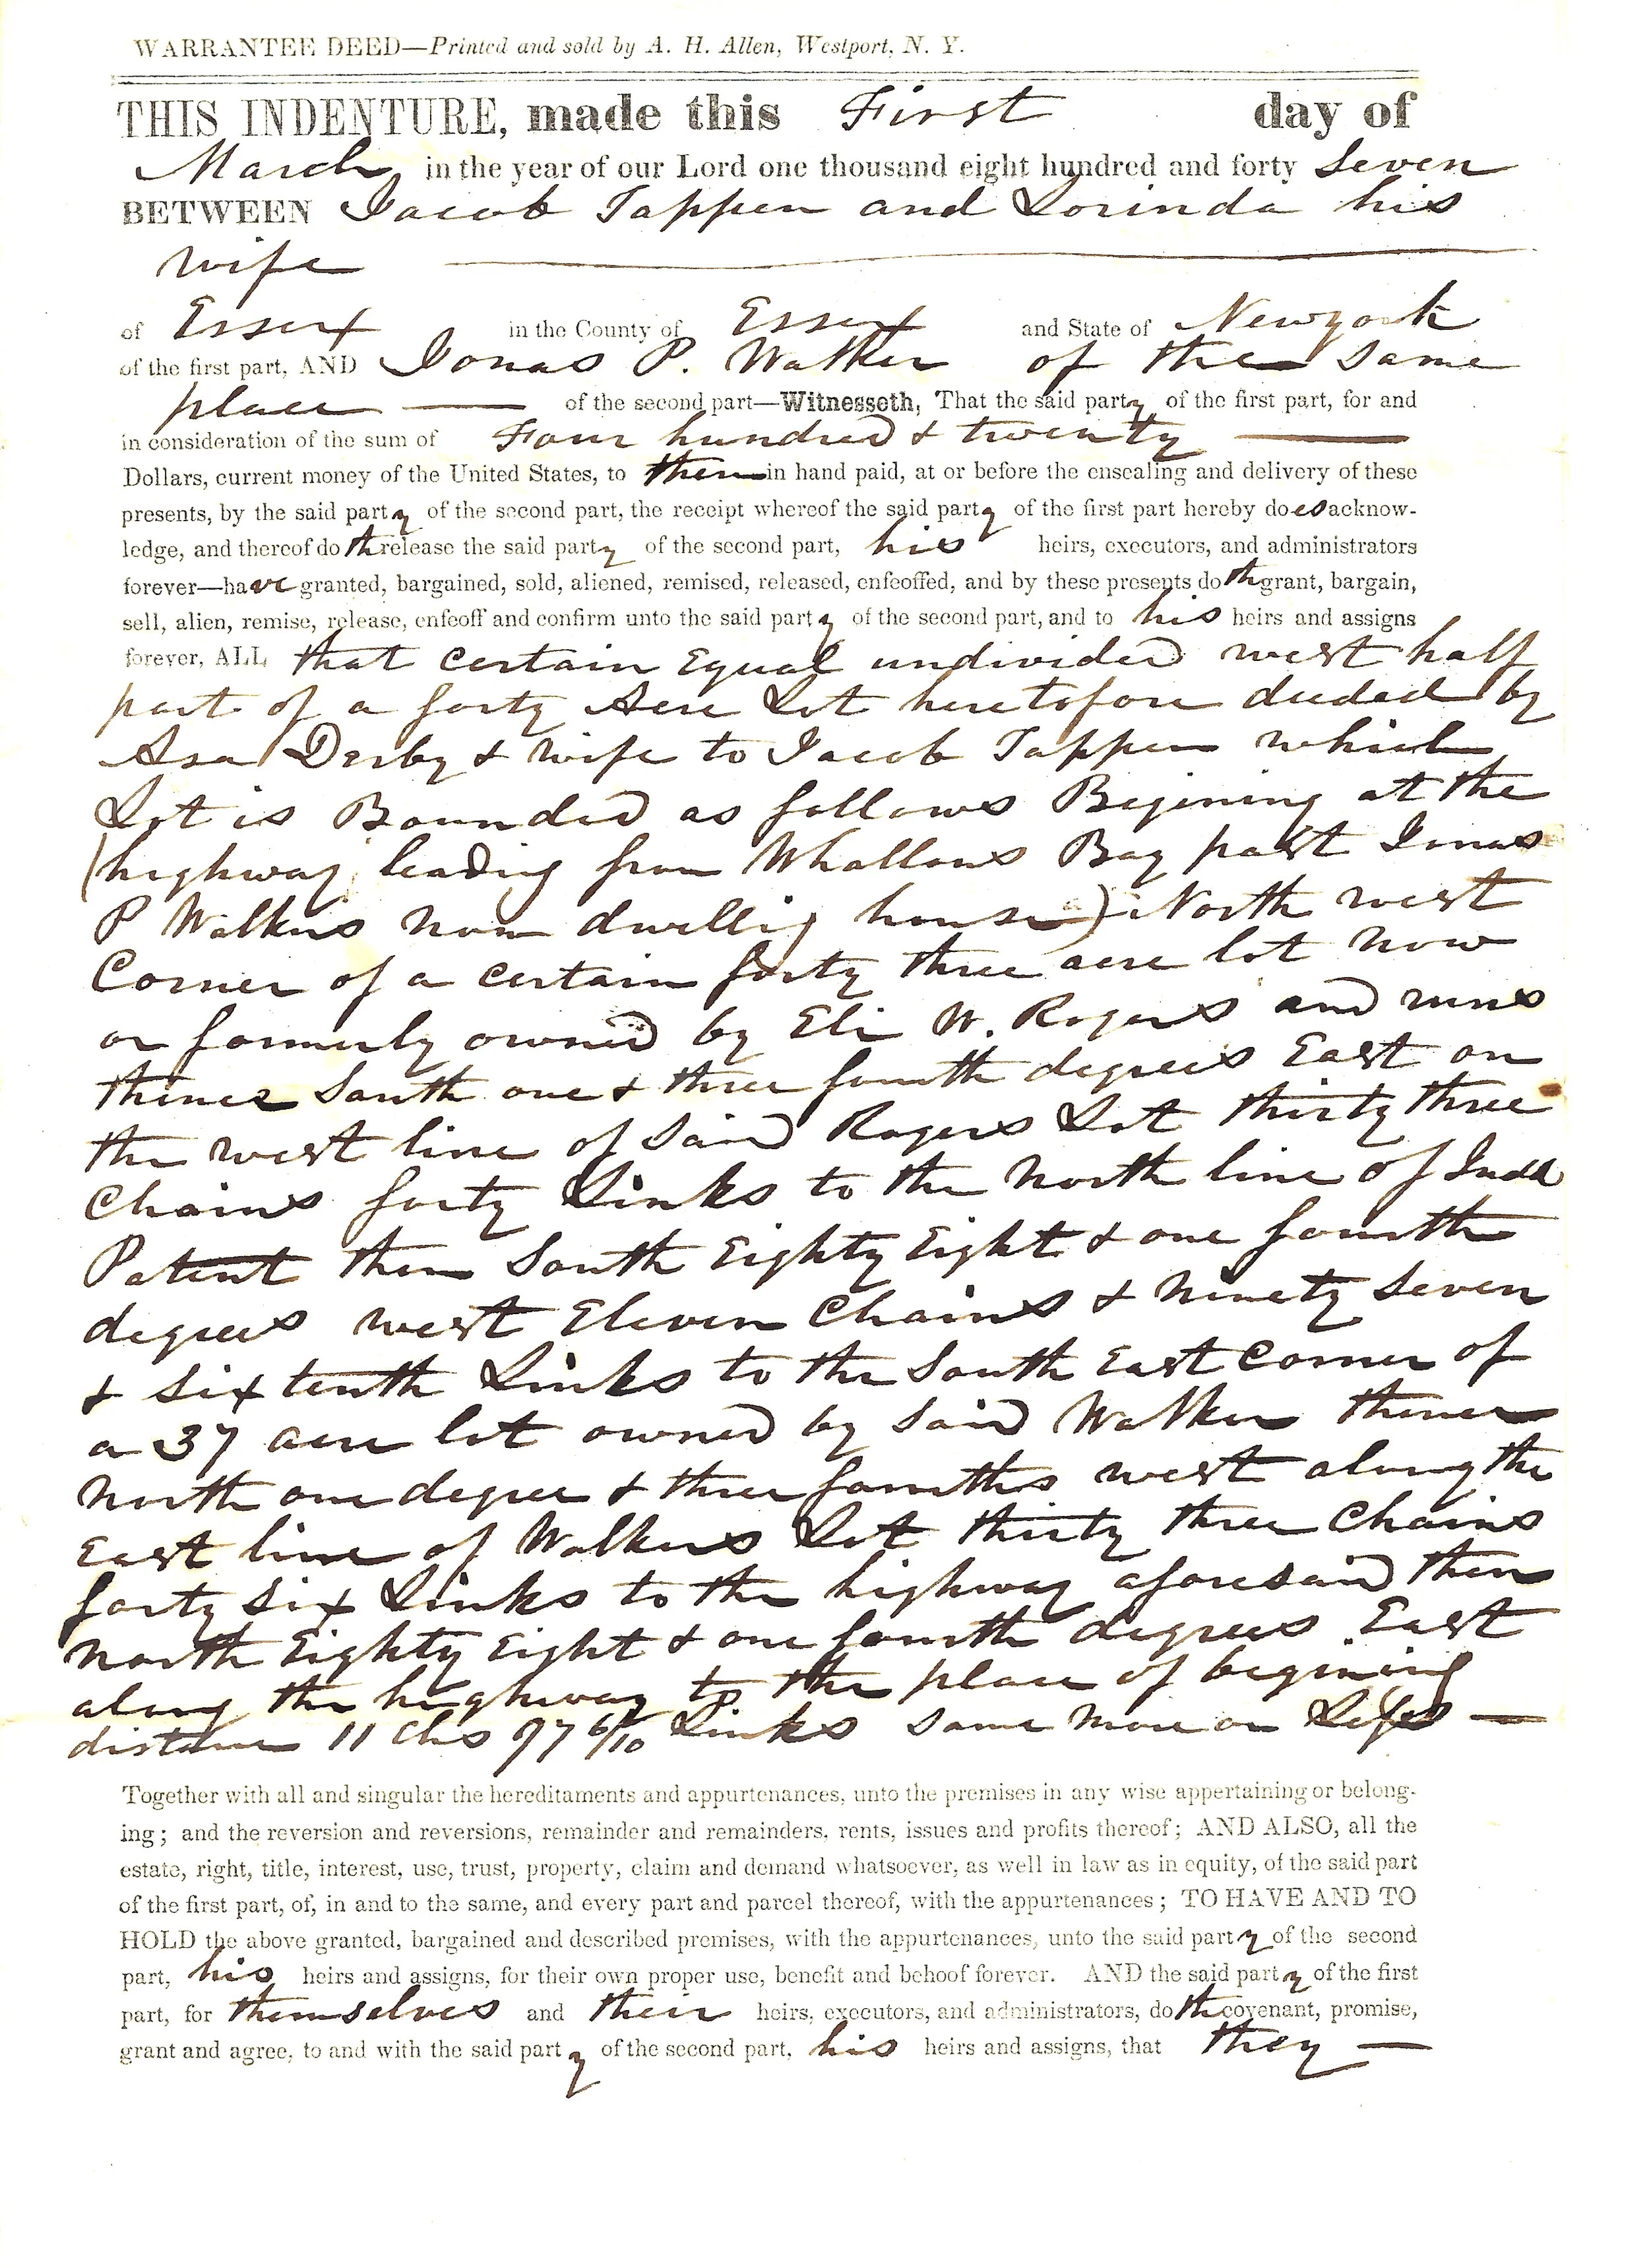 WARRANTEE DEED—Printed and sold by A. H. Allen, Westport, N. Y.
THIS INDENTURE, made this First day of
March in the year of our Lord one thousand eight hundred and forty Seven
BETWEEN Jacob Tappen and Lorinda his
wife
of Essex in the County of Essex and State of Newyork
of the first part, AND Jonas P. Walker of the Same
place of the second part—Witnesseth, That the said party of the first part, for and
in consideration of the sum of Four hundred & twenty
Dollars, current money of the United States, to them in hand paid, at or before the ensealing and delivery of these
presents, by the said party of the second part, the receipt whereof the said party of the first part hereby does acknow-
ledge, and thereof doth release the said party of the second part, his heirs, executors, and administrators
forever—have granted, bargained, sold, aliened, remised, released, enfeoffed, and by these presents doth grant, bargain,
sell, alien, remise, release, enfeoff and confirm unto the said party of the second part, and to his heirs and assigns
forever, ALL that certain Equal undivided west half
part of a forty Acre Lot heretofore deeded by
Asa Derby & wife to Jacob Tappen which
Lot is Bounded as follows Begining at the
(highway leading from Whallons Bay past Jonas
P Walkers now dwellig house) North west
Corner of a certain forty three acre lot now
or formerly owned by Eli W. Rogers and runs
thence South one & three fourth degrees East on
the west line of Said Rogers Lot thirty three
Chains forty Links to the North line of Judd
Patent then South Eighty Eight & one fourth
degrees west Eleven Chains & Ninety Seven
& Six tenth Links to the South East Corner of
a 37 acre lot owned by Said Walker thence
North one degree & three fourths west along the
East line of Walkers Lot thirty three Chains
forty Six Links to the highway aforesaid then
North Eighty Eight & one fourth degrees East
along the highway to the place of begining
distance 11 Chs 97 6/10 Links Same More or Less
Together with all and singular the hereditaments and appurtenances, unto the premises in any wise appertaining or belong-
ing; and the reversion and reversions, remainder and remainders, rents, issues and profits thereof; AND ALSO, all the
estate, right, title, interest, use, trust, property, claim and demand whatsoever, as well in law as in equity, of the said part
of the first part, of, in and to the same, and every part and parcel thereof, with the appurtenances; TO HAVE AND TO
HOLD the above granted, bargained and described premises, with the appurtenances, unto the said party of the second
part, his heirs and assigns, for their own proper use, benefit and behoof forever. AND the said party of the first
part, for themselves and their heirs, executors, and administrators, doth covenant, promise,
grant and agree, to and with the said party of the second part, his heirs and assigns, that they